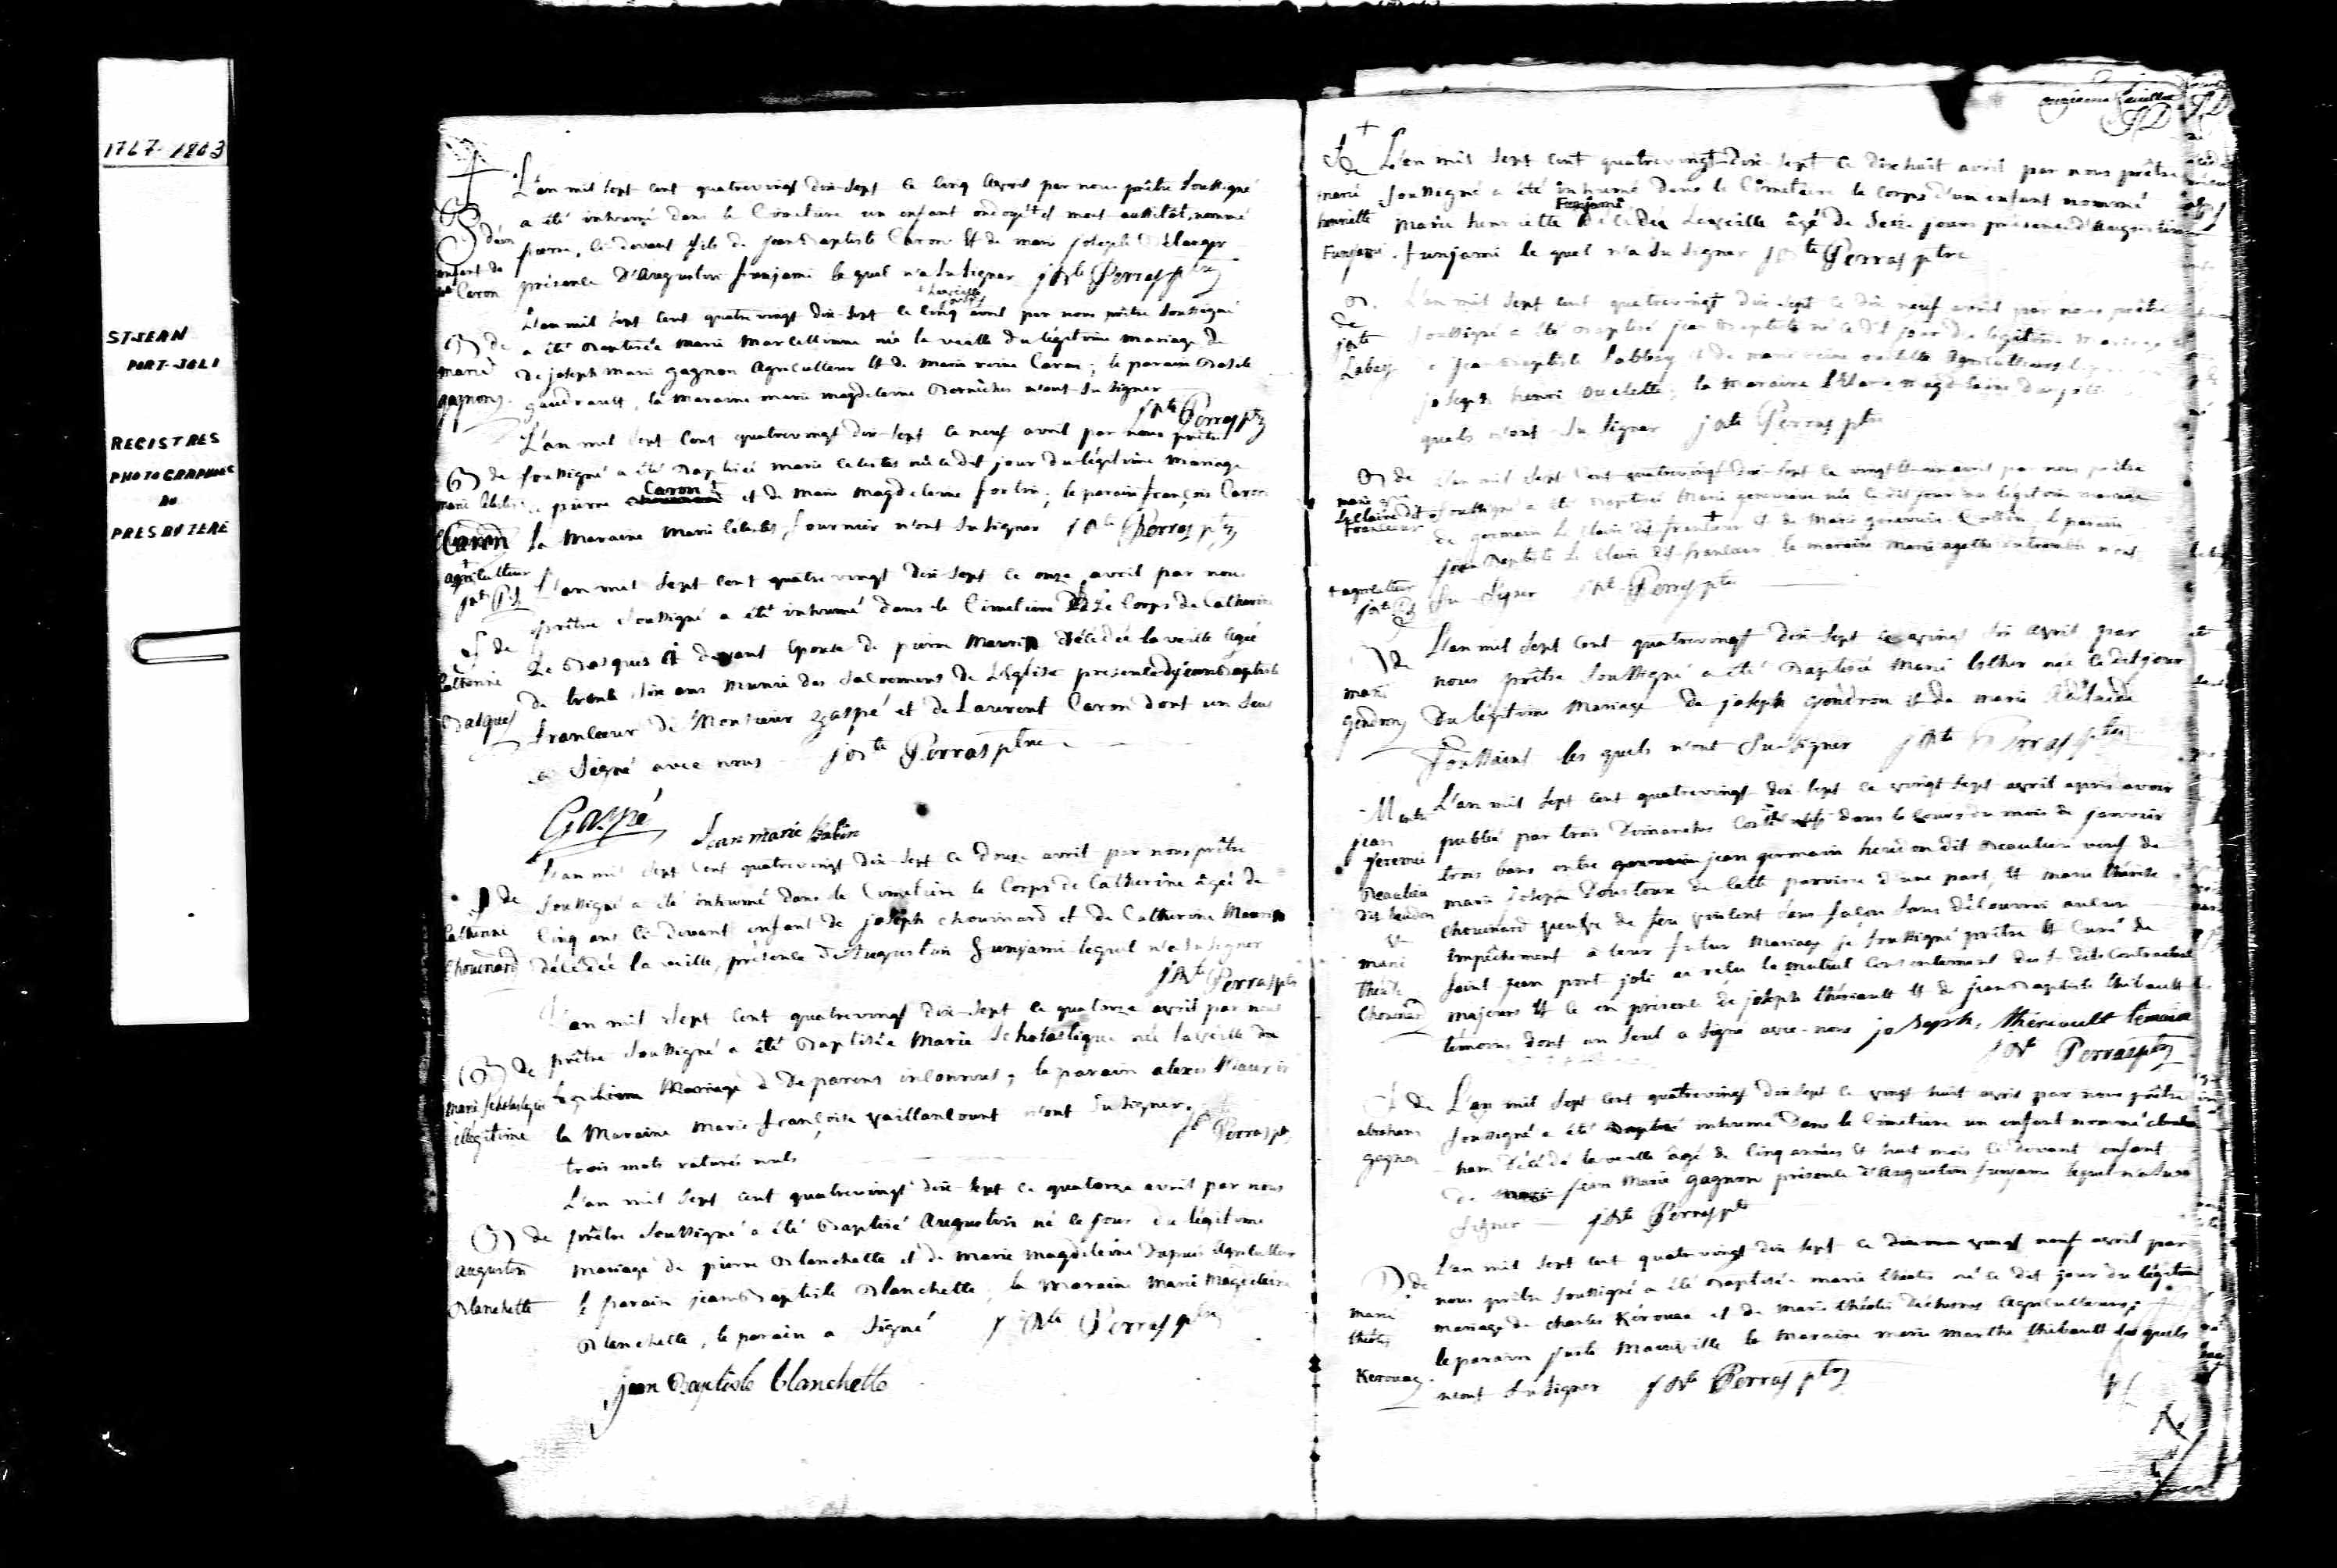 1767-1803
ST-JEAN
PORT-JOLI
REGISTRES
PHOTOGRAPHIES
AU
PRESBYTERE
L'an mil sept cent quatrevingt dix-sept ce cinq avril par nous prêtre soussigné
a été inhumé dans le Cimetiere un enfant ondoyé et mort aussitôt, nommé
pierre, ci-devant fils de jean Baptiste Caron et de marie josephe Belanger
présence d'Augustin funjami le quel n'a su signer jBte Perras ptre
enfant de
Caron
L'an mil sept cent quatre vingt dix-sept ce cinq avril par nous prêtre soussigné
a été Baptisée Marie Marcellinne née la veille du légitime mariage de
de joseph Marie gagnon Agriculteur et de Marie reine Caron; le parain Basile
gaudrault, la Maraine marie magdeleine Berniches n'ont su signer
jBte Perras ptre
B de
marie
gagnon
L'an mil sept cent quatrevingt dix-sept ce neuf avril par nous prêtre
soussigné a été Baptisée Marie Celestes née ce dit jour du légitime Mariage
de pierre Caron + et de Marie Magdeleine fortin; le parain françois Caron
la Maraine Marie Celestes fournier n'ont su signer jBte Perras ptre
B de
marie Celestes
Caron
+
agriculteur
L'an mil sept cent quatre vingt dix-sept ce onze avril par nous
prêtre soussigné a été inhumé dans le Cimetiere le Corps de Catherine
Le Basques ci devant Epouse de pierre Maurin décédée la veille agée
de trente six ans Munie des sacremens de L'Eglise presence de jean Baptiste
francoeur de Monsieur gaspé et de Laurent Caron dont un seul
a Signé avec nous jBte Perras ptre
S de
Catherine
Basques
Gaspé
Jean marie
L'an mil sept Cent quatrevingt dix-sept ce douze avril par nous prêtre
soussigné a été inhumé dans le Cimetiere le Corps de Catherine âgée de
Cinq ans ci-devant enfant de joseph chouinard et de Catherine Maurin
décédée la veille, présence d'Augustin funjami lequel n'a su signer
jBte Perras ptre
S de
Catherine
Chouinard
L'an mil sept cent quatrevingt dix-sept ce quatorze avril par nous
prêtre soussigné a été Baptisée Marie Scholastique née la veille du
légitime Mariage d De parens inconnus; le parain alexis Maurin
la Maraine Marie françoise vaillancourt n'ont su signer.
trois mots raturés nuls
Perras ptre
B de
Marie Scholastique
illégitime
L'an mil sept cent quatrevingt dix-sept ce quatorze avril par nous
prêtre soussigné a été Baptisé Augustin né ce jour du légitime
Mariage de pierre Blanchette et de Marie Magdeleine Dupuis Agriculteur
le parain jean Baptiste Blanchette, la Maraine Marie Magdeleine
Blanchette, le parain a signé jBte Perras ptre
jean Baptiste blanchette
B de
augustin
Blanchette
onzieme feuillet
L'an mil sept cent quatrevingt dix-sept ce dix huit avril par nous prêtre
soussigné a été inhumé dans le Cimetiere le Corps d'un enfant nommé
Marie henriette Funjami décédée la veille âgé de Seize jours présence d'Augustin
funjami le quel n'a su signer jBte Perras ptre
S de
marie
henriette
Funjami
L'an mil sept cent quatrevingt dix-sept ce dix neuf avril par nous prêtre
soussigné a été Baptisé jean Baptiste né ce dit jour du légitime Mariage
de jean Baptiste Labbey et de marie reine ouellette Agriculteurs
joseph henri Ouelette; la Maraine
quels n'ont su signer jBte Perras ptre
B.
de
jBte
Labey
L'an mil sept cent quatrevingt dix-sept ce vingt et un avril par nous prêtre
soussigné a été Baptisée Marie genevieve née ce dit jour du légitime mariage
de germain Le Clair dit francoeur + et de Marie genevieve le parain
jean Baptiste Le Clair dit francoeur, la maraine Marie agathe n'ont
su signer jBte Perras ptre
B de
marie gene
LeClaire dit
Francoeur
+ agriculteur
L'an mil sept cent quatrevingt dix-sept ce vingt six avril par
nous prêtre soussigné a été Baptisée Marie Esther née ce dit jour
du légitime Mariage de joseph gendron et de marie
Toussaint les quels n'ont su signer jBte Perras ptre
B de
marie
gendron
L'an mil sept cent quatrevingt dix-sept ce vingt sept avril après avoir
publié par trois Dimanches dans le cours du mois de janvier
trois bans entre jean germain heudon dit Beaulieu veuf de
marie joseph de cette paroisse d'une part, et Marie thérèse
chouinard veufve de feu vincent sans façon sans découvrir aucun
Empêchement à leur futur Mariage je soussigné prêtre et Curé de
saint jean port joli ai reçu le Mutuel Consentement des dits Contractans
majeurs et ce en présence de joseph thériault et de jean Baptiste thibault
témoins dont un seul a signé avec nous joseph thériault temoin
jBte Perras ptre
jean
Beaulieu
dit heudon
et
marie
Chouinard
L'an mil sept cent quatrevingt dix-sept ce vingt huit avril par nous prêtre
soussigné a été inhumé Dans le Cimetiere un enfant nommé abra
ham décédé la veille âgé de Cinq années et huit mois ci devant enfant
de jean Marie gagnon présence d'Augustin funjami lequel n'a su
signer — jBte Perras ptre
S de
abraham
gagnon
L'an mil sept cent quatrevingt dix sept ce vingt neuf avril par
nous prêtre soussigné a été Baptisée marie théotis né ce dit jour du légitime
mariage de charles Kérouac et de Marie théotis Agriculteurs;
le parain la Maraine marie marthe thibault les quels
n'ont su signer jBte Perras ptre
B de
marie
théotis
Kerouac